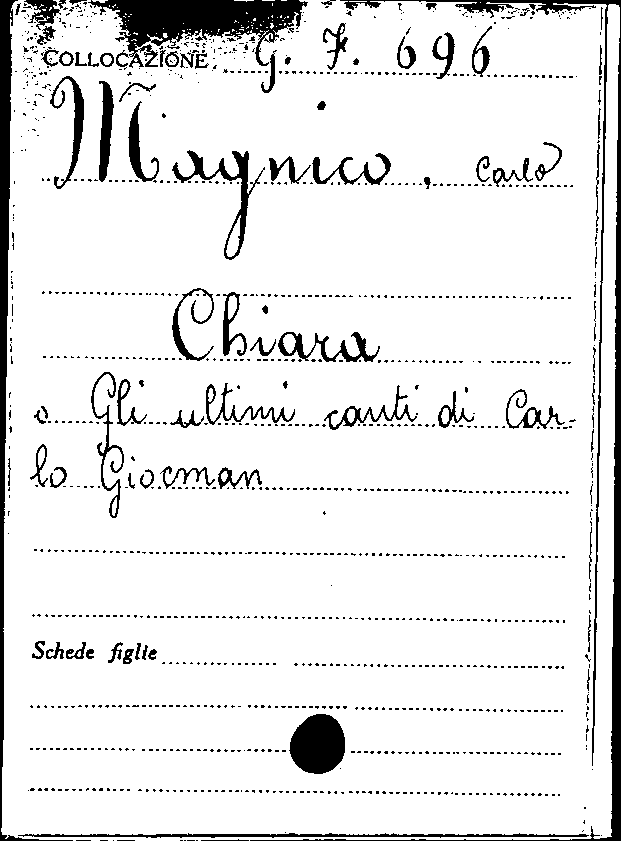 COLLOCAZIONE G. F. 696
Magnico, Carlo
Chiara
o Gli ultimi canti di Car-
lo Giocman
Schede figlie